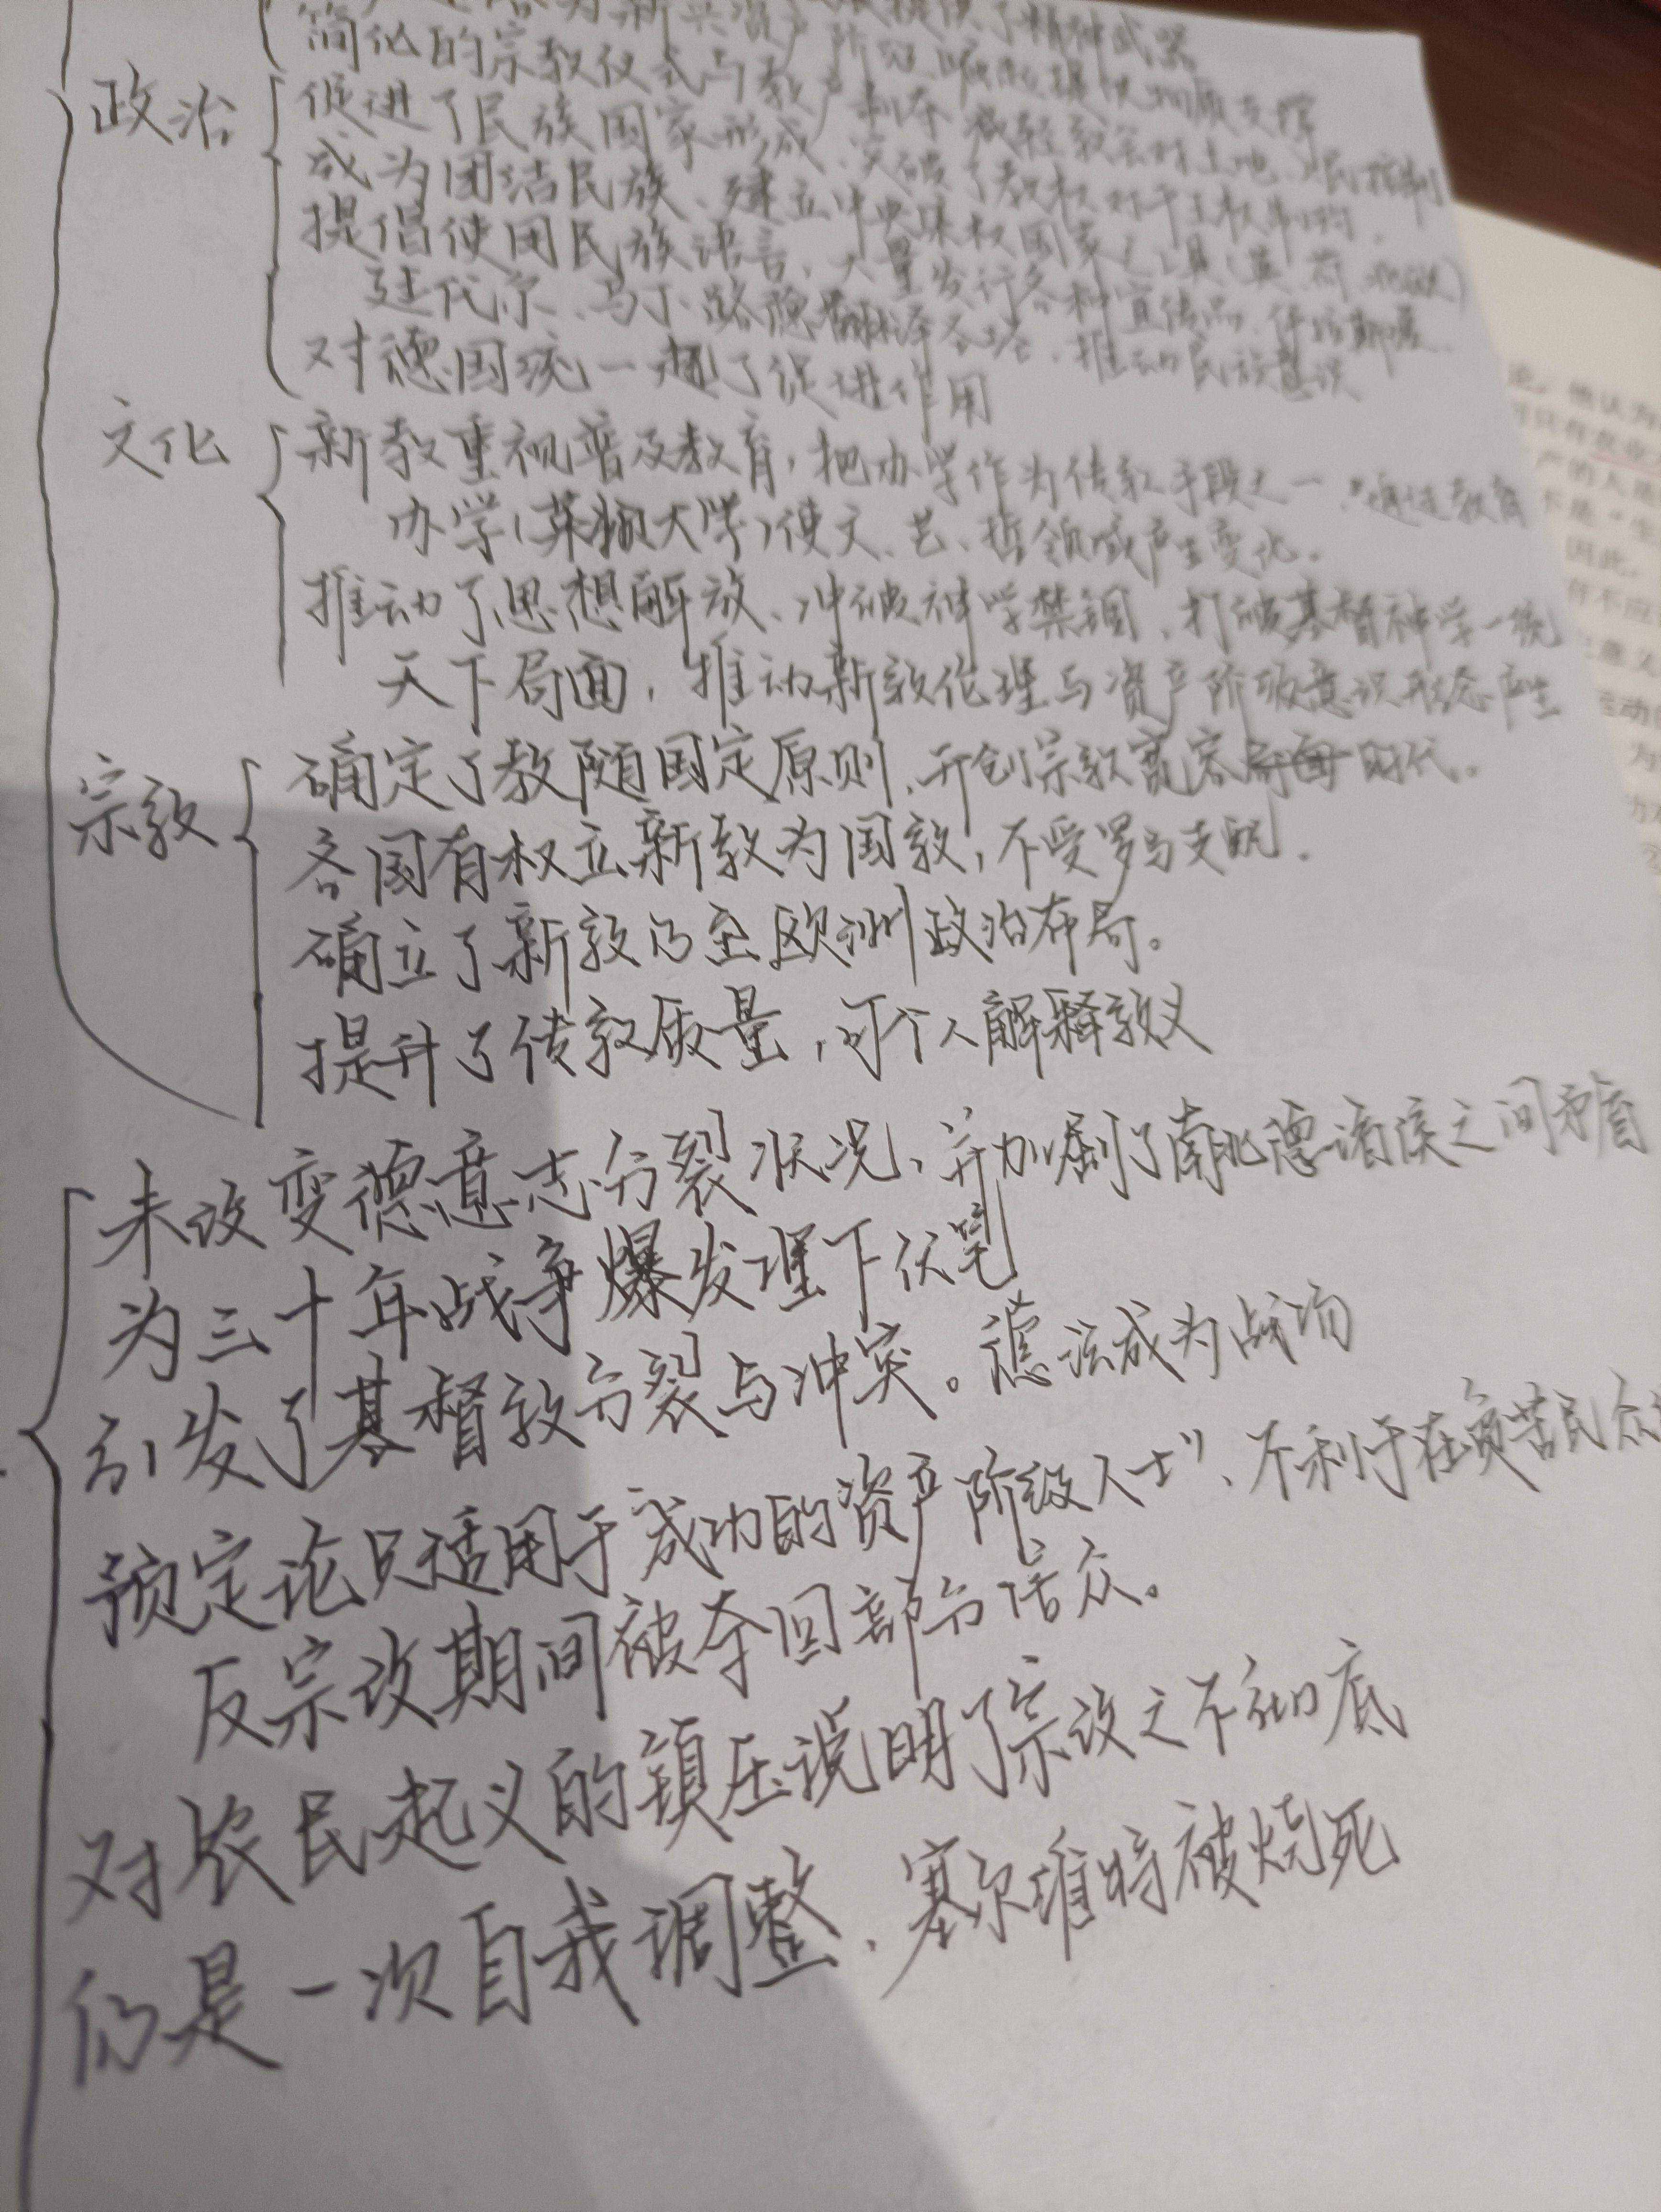 简化的宗教仪式与教产
政治
促进了民族国家形成、突破了教权对于王权制约，
成为团结民族、建立中央集权国家之工具(英、荷、北欧)
提倡使用民族语言，大量发行各种宣传品、
马丁·路德翻译圣经，推动民族意识
对德国统一起了促进作用
文化
新教重视普及教育，把办学作为传教手段之一，通过教育
办学(莱顿大学)使文、艺、哲领域产生变化。
推动了思想解放、冲破神学禁锢，打破基督神学一统
天下局面，推动新教伦理与资产阶级意识形态产生
宗教
确定了教随国定原则，开创宗教宽容时代。
各国有权立新教为国教，不受罗马支配．
确立了新教乃至欧洲政治布局。
提升了传教质量，可个人解释教义
未改变德意志分裂状况，并加剧了南北德诸侯之间矛盾
为三十年战争爆发埋下伏笔
引发了基督教分裂与冲突。德法成为战场
预定论只适用于成功的资产阶级人士”，不利于在贫苦民众
反宗改期间被夺回部分信众。
对农民起义的镇压说明了宗改之不彻底
仍是一次自我调整、塞尔维特被烧死
他认为
产的人是
不是“生
因此，
有不应
意义
运动
为